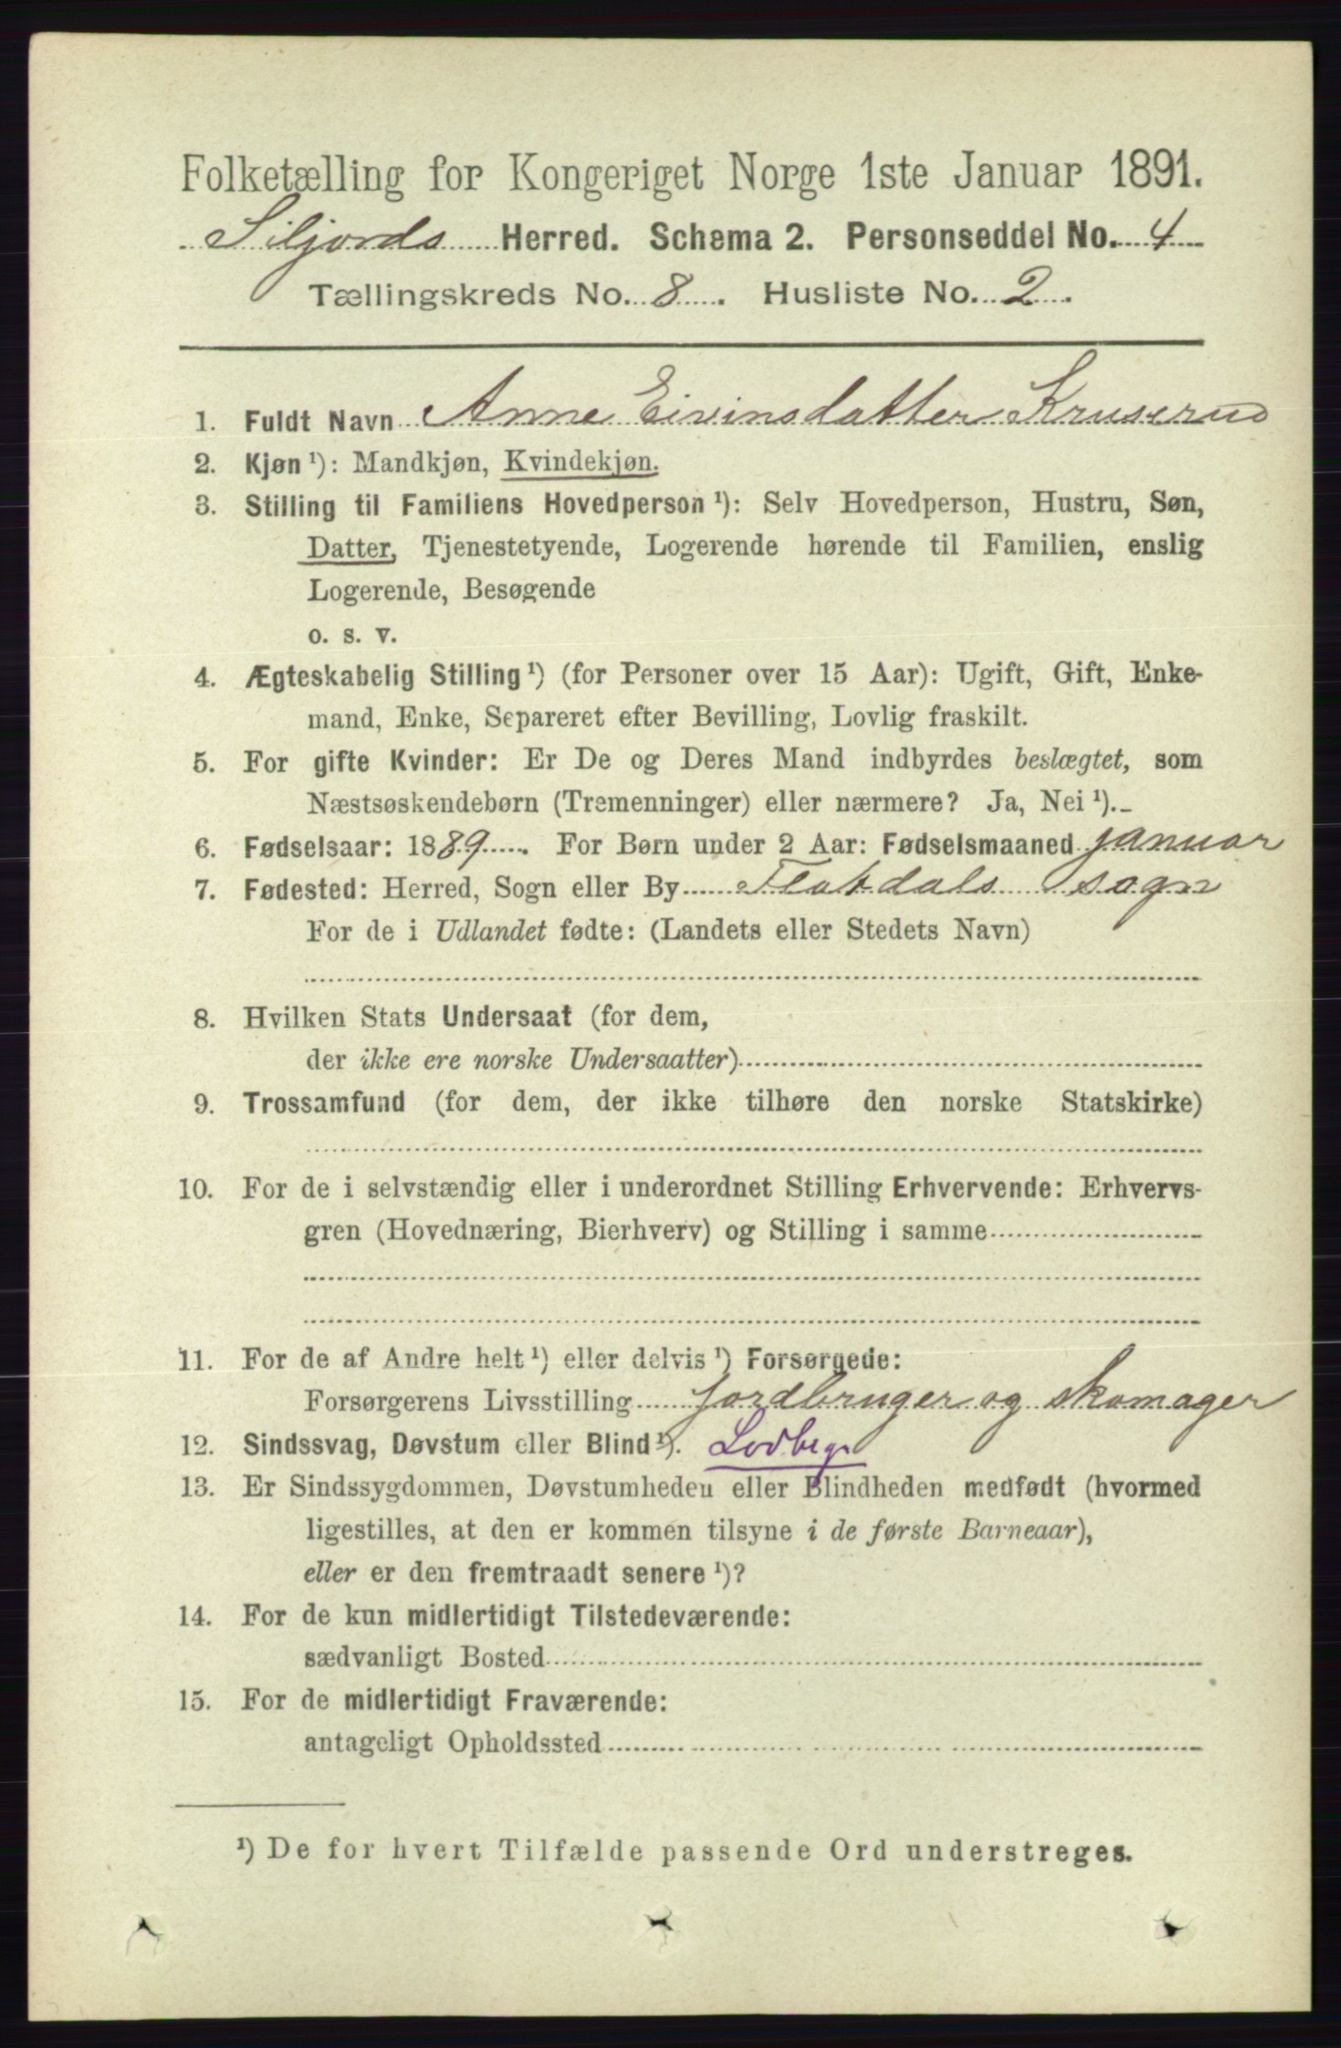 Folketælling for Kongeriget Norge 1ste Januar 1891.
Siljords Herred. Schema 2. Personseddel No. 4
Tællingskreds No. 8. Husliste No. 2.
1. Fuldt Navn Anne Eivinsdatter Kruserud
2. Kjøn ¹): Mandkjøn, Kvindekjøn.
3. Stilling til Familiens Hovedperson ¹): Selv Hovedperson, Hustru, Søn,
Datter, Tjenestetyende, Logerende hørende til Familien, enslig
Logerende, Besøgende
o. s. v.
4. Ægteskabelig Stilling ¹) (for Personer over 15 Aar): Ugift, Gift, Enke-
mand, Enke, Separeret efter Bevilling, Lovlig fraskilt.
5. For gifte Kvinder: Er De og Deres Mand indbyrdes beslægtet, som
Næstsøskendebørn (Tremenninger) eller nærmere? Ja, Nei ¹).
6. Fødselsaar: 1889. For Børn under 2 Aar: Fødselsmaaned januar
7. Fødested: Herred, Sogn eller By Flatdals sogn
For de i Udlandet fødte: (Landets eller Stedets Navn)
8. Hvilken Stats Undersaat (for dem,
der ikke ere norske Undersaatter)
9. Trossamfund (for dem, der ikke tilhøre den norske Statskirke)
10. For de i selvstændig eller i underordnet Stilling Erhvervende: Erhvervs-
gren (Hovednæring, Bierhverv) og Stilling i samme
11. For de af Andre helt ¹) eller delvis ¹) Forsørgede:
Forsørgerens Livsstilling jordbruger og skomager
12. Sindssvag, Døvstum eller Blind ¹).
13. Er Sindssygdommen, Døvstumheden eller Blindheden medfødt (hvormed
ligestilles, at den er kommen tilsyne i de første Barneaar),
eller er den fremtraadt senere ¹)?
14. For de kun midlertidigt Tilstedeværende:
sædvanligt Bosted
15. For de midlertidigt Fraværende:
antageligt Opholdssted
¹) De for hvert Tilfælde passende Ord understreges.